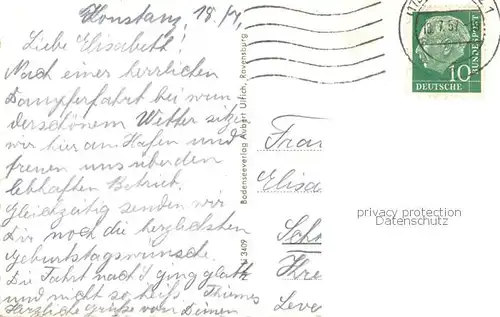 Konstanz, 18./7.
Liebe Elisabeth!
Nach einer herrlichen
Dampferfahrt bei wun-
derschönem Wetter sitzen
wir hier am Hafen und
freuen uns über den
lebhaften Betrieb.
Gleichzeitig senden wir
Dir noch die herzlichsten
Geburtstagswünsche.
Die Fahrt nach ging glatt
und nicht so heiß.
Herzliche Grüße von Deinen
Bodenseeverlag Aubert Ulrich, Ravensburg
3409
Frau
Elisa
Sch
Kre
Leve
18.7.57
10
DEUTSCHE
BUNDESPOST
privacy protection
Datenschutz